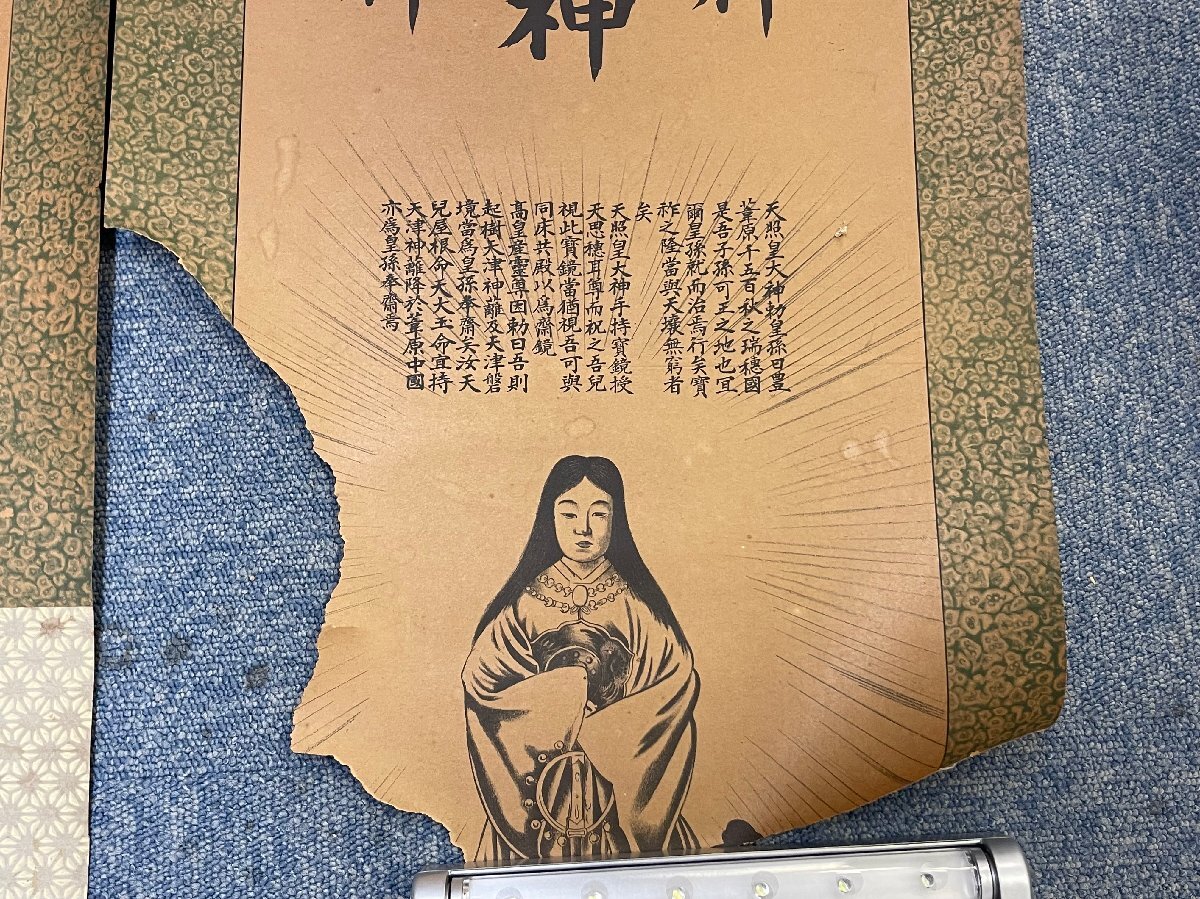 神
天照皇大神勅皇孫曰豊
葦原千五百秋之瑞穗國
是吾子孫可王之地也宜
爾皇孫就而治焉行矣寶
祚之隆當與天壤無窮者
矣
天照皇大神手持寶鏡授
天思穗耳尊而祝之吾兒
視此寶鏡當猶視吾可與
同床共殿以爲齋鏡
高皇産靈尊因勅曰吾則
起樹天津神籬及天津磐
境當爲皇孫奉齋矣汝天
兒屋根命天太玉命宜持
天津神籬降於葦原中國
亦爲皇孫奉齋焉